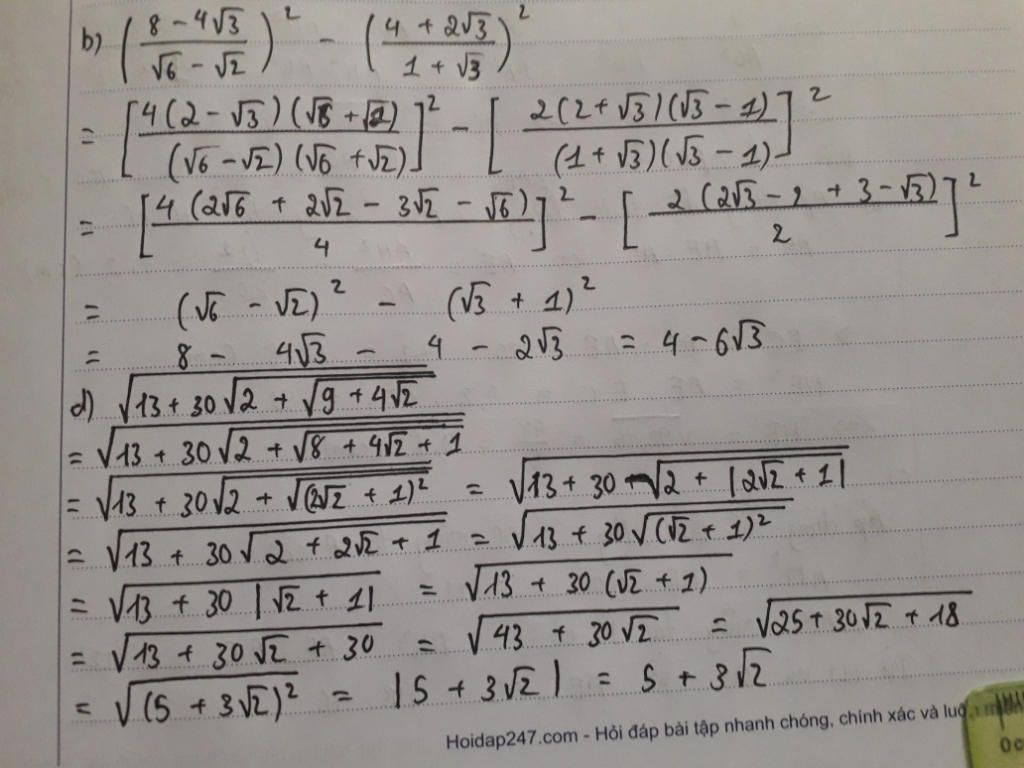 b) ( (8 - 4√3) / (√6 - √2) )² - ( (4 + 2√3) / (1 + √3) )²
= [ 4(2 - √3)(√6 + √2) / (√6 - √2)(√6 + √2) ]² - [ 2(2 + √3)(√3 - 1) / (1 + √3)(√3 - 1) ]²
= [ 4(2√6 + 2√2 - 3√2 - √6) / 4 ]² - [ 2(2√3 - 2 + 3 - √3) / 2 ]²
= (√6 - √2)² - (√3 + 1)²
= 8 - 4√3 - 4 - 2√3 = 4 - 6√3
d) √(13 + 30√(2 + √(9 + 4√2)))
= √(13 + 30√(2 + √(8 + 4√2 + 1)))
= √(13 + 30√(2 + √((2√2 + 1)²))) = √(13 + 30√(2 + |2√2 + 1|))
= √(13 + 30√(2 + 2√2 + 1)) = √(13 + 30√((√2 + 1)²))
= √(13 + 30|√2 + 1|) = √(13 + 30(√2 + 1))
= √(13 + 30√2 + 30) = √(43 + 30√2) = √(25 + 30√2 + 18)
= √((5 + 3√2)²) = |5 + 3√2| = 5 + 3√2
Hoidap247.com - Hỏi đáp bài tập nhanh chóng, chính xác và